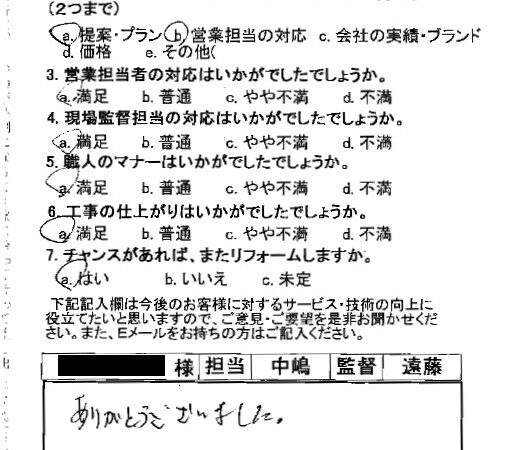 (2つまで)
a. 提案・プラン b. 営業担当の対応 c. 会社の実績・ブランド
d. 価格 e. その他(
3. 営業担当者の対応はいかがでしたでしょうか。
a. 満足 b. 普通 c. やや不満 d. 不満
4. 現場監督担当の対応はいかがでしたでしょうか。
a. 満足 b. 普通 c. やや不満 d. 不満
5. 職人のマナーはいかがでしたでしょうか。
a. 満足 b. 普通 c. やや不満 d. 不満
6. 工事の仕上がりはいかがでしたでしょうか。
a. 満足 b. 普通 c. やや不満 d. 不満
7. チャンスがあれば、またリフォームしますか。
a. はい b. いいえ c. 未定
下記記入欄は今後のお客様に対するサービス・技術の向上に
役立てたいと思いますので、ご意見・ご要望を是非お聞かせくだ
さい。また、Eメールをお持ちの方はご記入ください。
様 担当 中嶋 監督 遠藤
ありがとうございました。